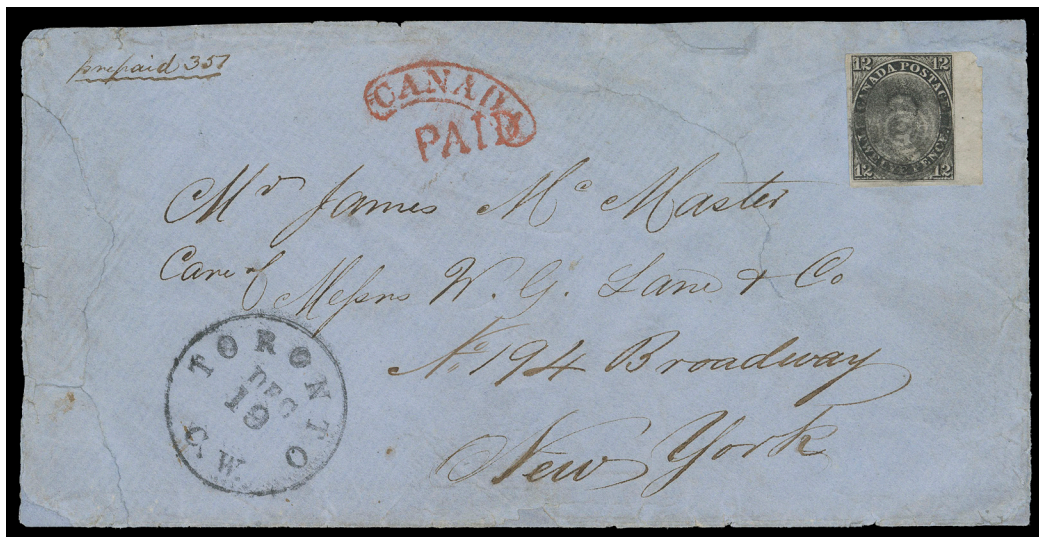 prepaid 357
CANADA
PAID
12 12
CANADA POSTAGE
TWELVE PENCE
12 12
Mr James Mc Master
Care of Messrs W. G. Lane & Co
No. 194 Broadway
New York
TORONTO
DEC
19
C. W.